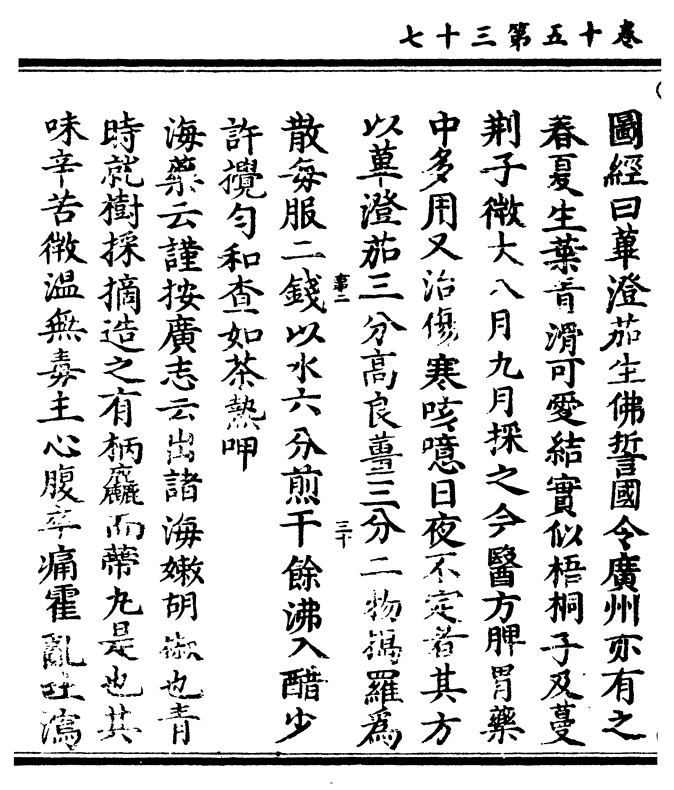 卷十五第三十七
圖經曰蓽澄茄生佛誓國今廣州亦有之
春夏生葉青滑可愛結實似梧桐子及蔓
荆子微大八月九月採之今醫方脾胃藥
中多用又治傷寒咳噫日夜不定者其方
以蓽澄茄三分高良薑三分二物擣羅爲
散每服二錢以水六分煎十餘沸入醋少
許攪勻和查如茶熱呷
海藥云謹按廣志云出諸海嫩胡椒也青
時就樹採摘造之有柄麤而蔕丸是也其
味辛苦微溫無毒主心腹卒痛霍亂吐瀉